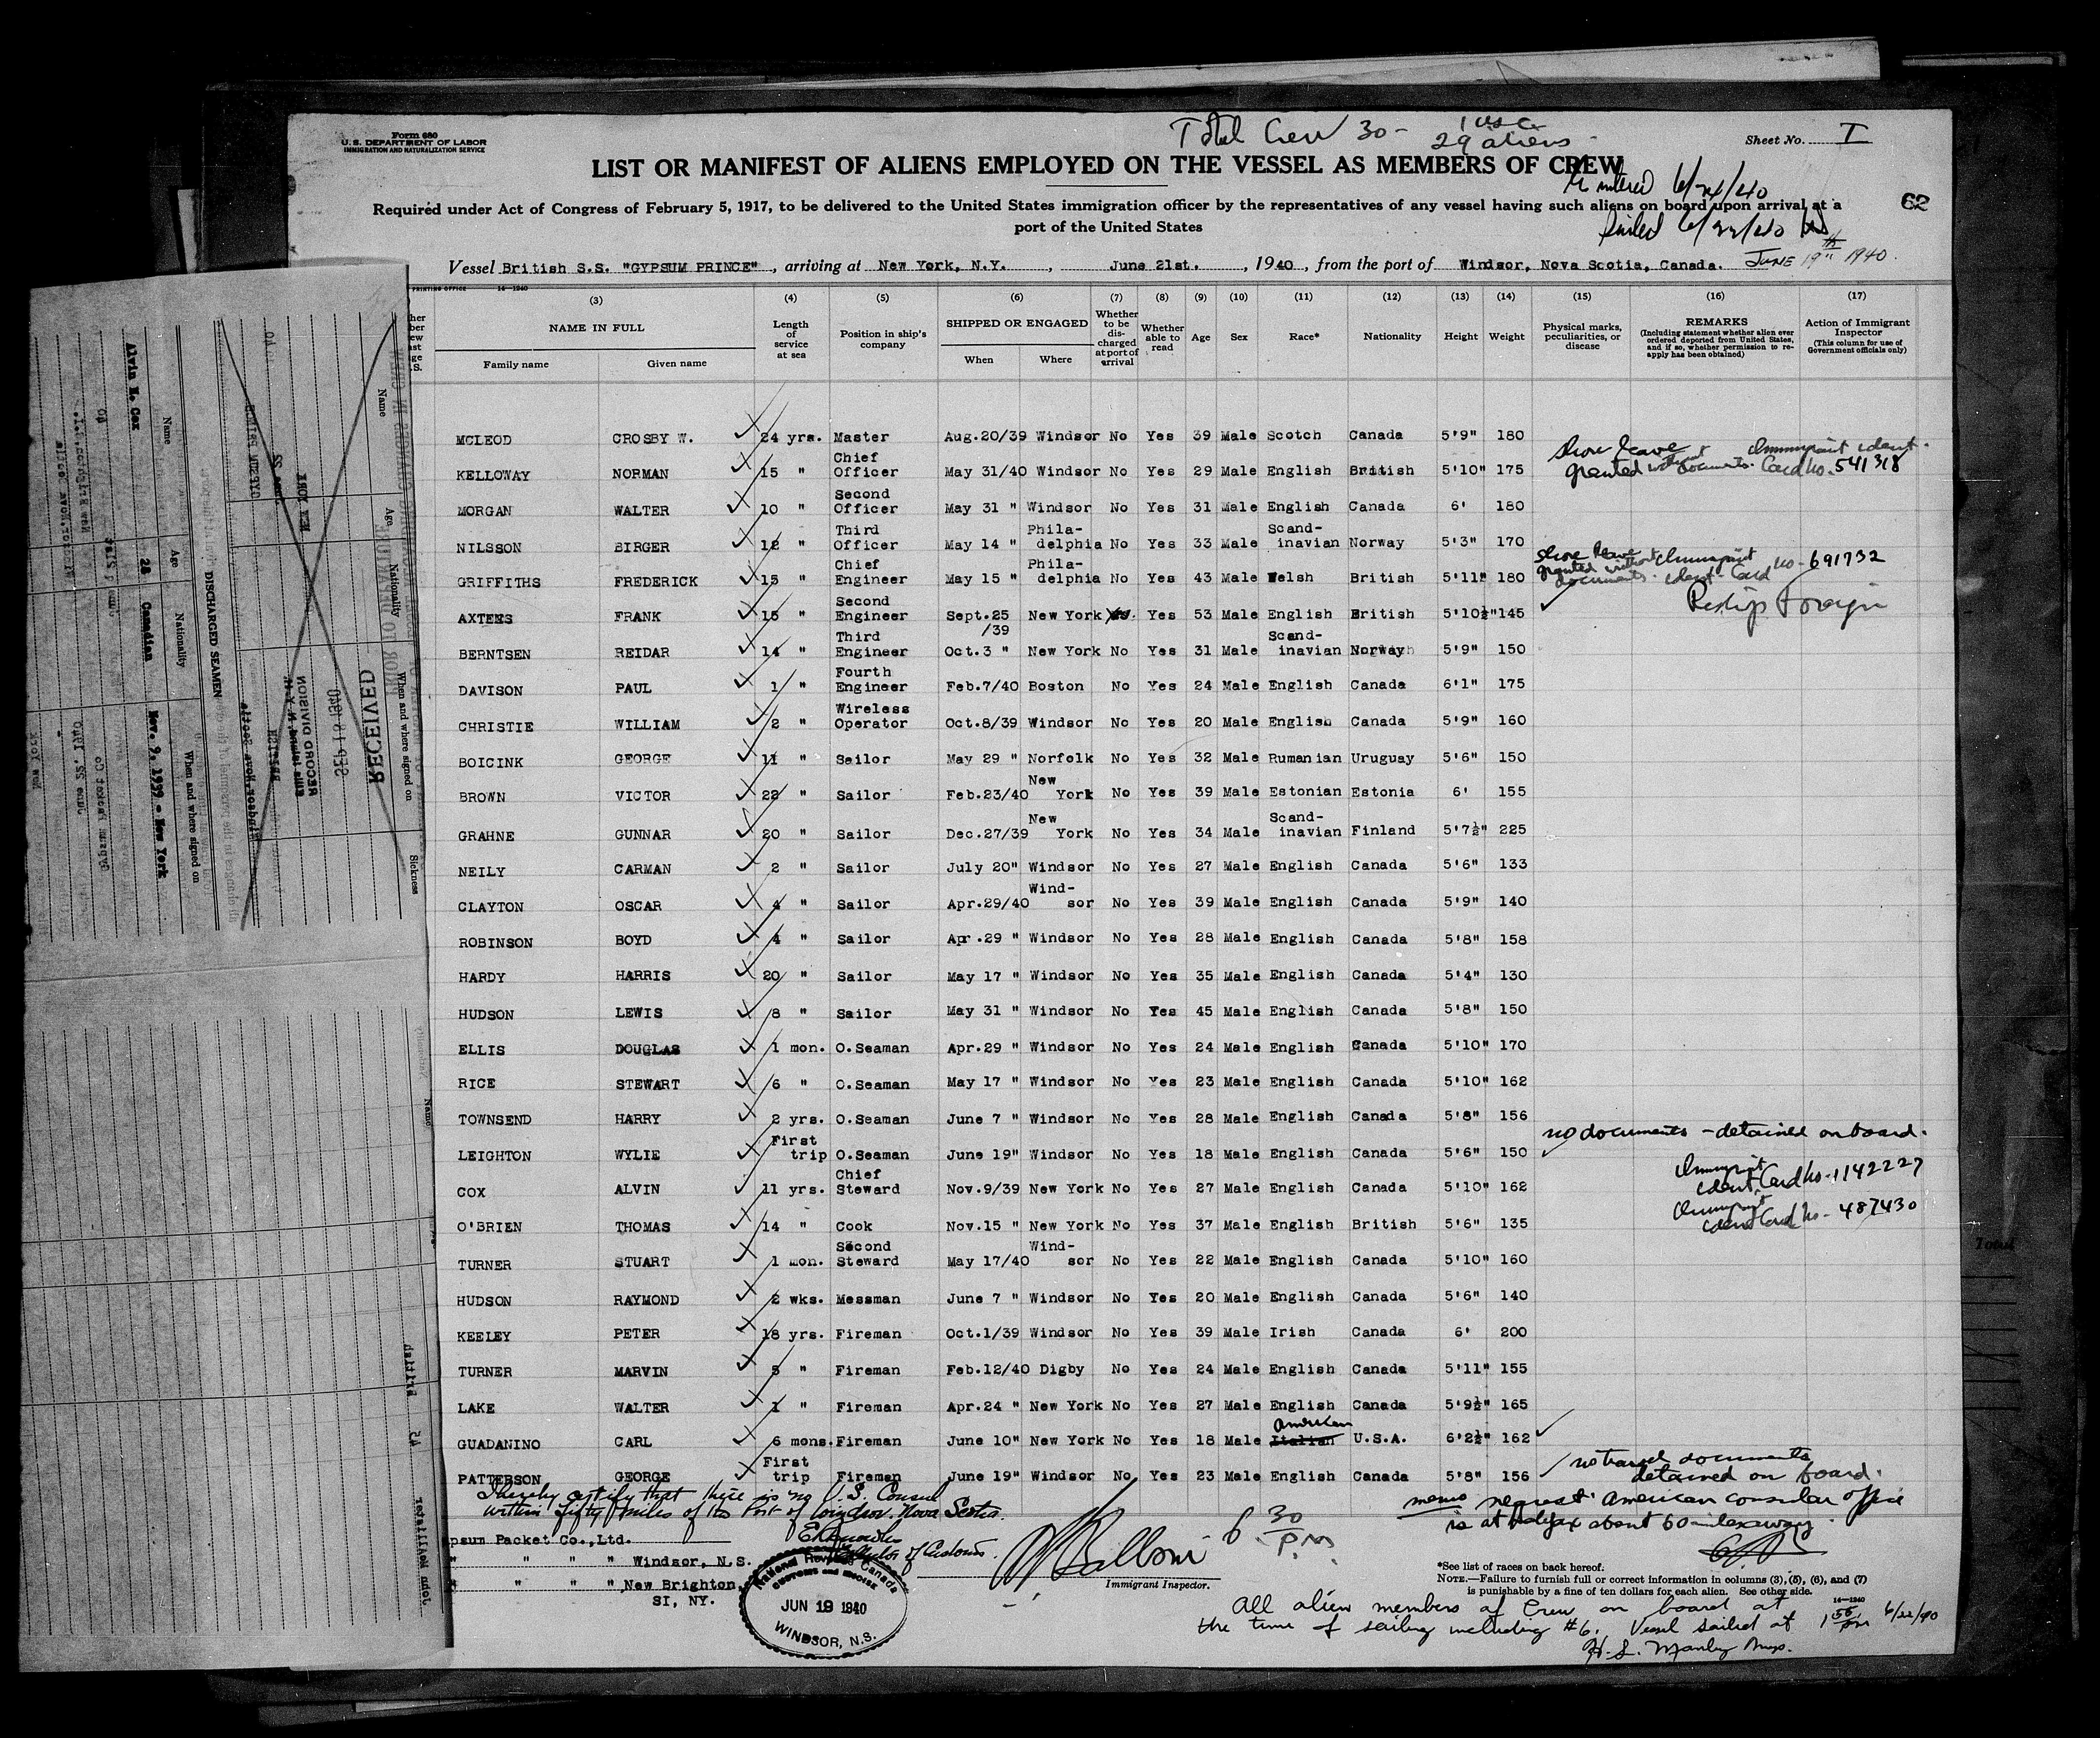 Form 680
U.S. DEPARTMENT OF LABOR
IMMIGRATION AND NATURALIZATION SERVICE
Total Crew 30 - 1 USC
29 aliens
Sheet No. I
LIST OR MANIFEST OF ALIENS EMPLOYED ON THE VESSEL AS MEMBERS OF CREW
6/21/40
Required under Act of Congress of February 5, 1917, to be delivered to the United States immigration officer by the representatives of any vessel having such aliens on board upon arrival at a
port of the United States
62
Sailed 6/22/40
Vessel British S.S. "GYPSUM PRINCE", arriving at New York, N.Y., June 21st., 1940, from the port of Windsor, Nova Scotia, Canada. JUNE 19th 1940.
(3) (4) (5) (6) (7) (8) (9) (10) (11) (12) (13) (14) (15) (16) (17)
NAME IN FULL
Family name
Given name
Length of service at sea
Position in ship's company
SHIPPED OR ENGAGED
When
Where
Whether to be discharged at port of arrival
Whether able to read
Age
Sex
Race*
Nationality
Height
Weight
Physical marks, peculiarities, or disease
REMARKS
(Including statement whether alien ever ordered deported from United States, and if so, whether permission to reapply has been obtained)
Action of Immigrant Inspector
(This column for use of Government officials only)
MCLEOD CROSBY W. 24 yrs. Master Aug.20/39 Windsor No Yes 39 Male Scotch Canada 5'9" 180
KELLOWAY NORMAN 15 " Chief Officer May 31/40 Windsor No Yes 29 Male English British 5'10" 175 Shore leave granted without documents. Immigrant ident. Card No. 541318
MORGAN WALTER 10 " Second Officer May 31 " Windsor No Yes 31 Male English Canada 6' 180
NILSSON BIRGER 12 " Third Officer May 14 " Phila-delphia No Yes 33 Male Scand-inavian Norway 5'3" 170
GRIFFITHS FREDERICK 15 " Chief Engineer May 15 " Phila-delphia No Yes 43 Male Welsh British 5'11" 180 Shore leave granted without documents. Immigrant ident. Card No - 691732
AXTEES FRANK 15 " Second Engineer Sept.25/39 New York Yes. Yes 53 Male English British 5'10½" 145 Reship Foreign
BERNTSEN REIDAR 14 " Third Engineer Oct.3 " New York No Yes 31 Male Scand-inavian Norway 5'9" 150
DAVISON PAUL 1 " Fourth Engineer Feb.7/40 Boston No Yes 24 Male English Canada 6'1" 175
CHRISTIE WILLIAM 2 " Wireless Operator Oct.8/39 Windsor No Yes 20 Male English Canada 5'9" 160
BOICINK GEORGE 11 " Sailor May 29 " Norfolk No Yes 32 Male Rumanian Uruguay 5'6" 150
BROWN VICTOR 22 " Sailor Feb.23/40 New York No Yes 39 Male Estonian Estonia 6' 155
GRAHNE GUNNAR 20 " Sailor Dec.27/39 New York No Yes 34 Male Scand-inavian Finland 5'7½" 225
NEILY CARMAN 2 " Sailor July 20" Windsor No Yes 27 Male English Canada 5'6" 133
CLAYTON OSCAR 4 " Sailor Apr.29/40 Wind-sor No Yes 39 Male English Canada 5'9" 140
ROBINSON BOYD 4 " Sailor Apr.29 " Windsor No Yes 28 Male English Canada 5'8" 158
HARDY HARRIS 20 " Sailor May 17 " Windsor No Yes 35 Male English Canada 5'4" 130
HUDSON LEWIS 8 " Sailor May 31 " Windsor No Yes 45 Male English Canada 5'8" 150
ELLIS DOUGLAS 1 mon. O.Seaman Apr.29 " Windsor No Yes 24 Male English Canada 5'10" 170
RICE STEWART 6 " O.Seaman May 17 " Windsor No Yes 23 Male English Canada 5'10" 162
TOWNSEND HARRY 2 yrs. O.Seaman June 7 " Windsor No Yes 28 Male English Canada 5'8" 156
LEIGHTON WYLIE First trip O.Seaman June 19" Windsor No Yes 18 Male English Canada 5'6" 150 no documents - detained on board.
COX ALVIN 11 yrs. Chief Steward Nov.9/39 New York No Yes 27 Male English Canada 5'10" 162 Immigrant ident. Card No. 1142227
O'BRIEN THOMAS 14 " Cook Nov.15 " New York No Yes 37 Male English British 5'6" 135 Immigrant ident Card No - 487430
TURNER STUART 1 mon. Second Steward May 17/40 Wind-sor No Yes 22 Male English Canada 5'10" 160
HUDSON RAYMOND 2 wks. Messman June 7 " Windsor No Yes 20 Male English Canada 5'6" 140
KEELEY PETER 18 yrs. Fireman Oct.1/39 Windsor No Yes 39 Male Irish Canada 6' 200
TURNER MARVIN 5 " Fireman Feb.12/40 Digby No Yes 24 Male English Canada 5'11" 155
LAKE WALTER 1 " Fireman Apr.24 " New York No Yes 27 Male English Canada 5'9½" 165
GUADANINO CARL 6 mons. Fireman June 10" New York No Yes 18 Male Italian American U.S.A. 6'2½" 162
PATTERSON GEORGE First trip Fireman June 19" Windsor No Yes 23 Male English Canada 5'8" 156 no travel documents detained on board.
I hereby certify that there is no U.S. Consul
within fifty miles of the Port of Windsor, Nova Scotia.
Collector of Customs
memo nearest American consular office
is at Halifax about 60 miles away.
psum Packet Co.,Ltd.
" " " " Windsor, N.S.
" " " " New Brighton,
SI, NY.
National Revenue Canada
CUSTOMS AND EXCISE
JUN 19 1940
WINDSOR, N.S.
6 30 P.M.
Immigrant Inspector.
*See list of races on back hereof.
NOTE.—Failure to furnish full or correct information in columns (3), (5), (6), and (7)
is punishable by a fine of ten dollars for each alien. See other side.
All alien members of Crew on board at
the time of sailing including #6. Vessel sailed at 1 55 PM 6/22/40
H. S. Manley Insp.
Total
Name
Age
Nationality
When and where signed on
Sickness
RECEIVED
SEP 19 1940
RECORD DIVISION
DISCHARGED SEAMEN
Name
Age
Nationality
When and where signed on
Alvin M. Cox
28
Canadian
Nov. 9, 1939 - New York